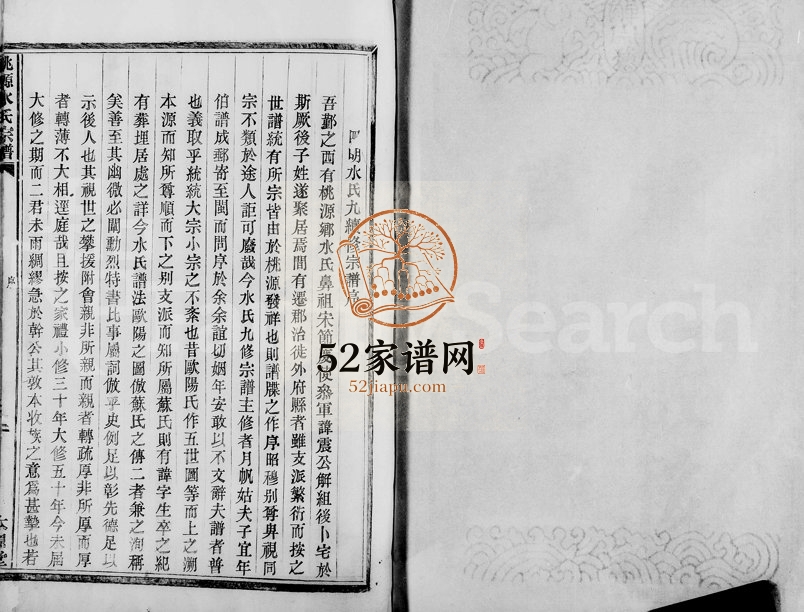 四明水氏九續修宗譜序
吾鄞之西有桃源鄉水氏鼻祖宋節度使叅軍諱震公解組後卜宅於
斯厥後子姓遂聚居焉間有遷郡治徙外府縣者雖支派繁衍而按之
世譜統有所宗皆由於桃源發祥也則譜牒之作序昭穆別尊卑視同
宗不類於途人詎可廢哉今水氏九修宗譜主修者月帆姑夫子宜年
伯譜成郵寄至閩而問序於余余誼切姻年安敢以不文辭夫譜者普
也義取乎統統大宗小宗之不紊也昔歐陽氏作五世圖等而上之溯
本源而知所尊順而下之別支派而知所屬蘇氏則有諱字生卒之紀
有葬埋居處之詳今水氏譜法歐陽之圖倣蘇氏之傳二者兼之洵稱
矣善至其幽微必闡勳烈特書比事屬詞倣乎史例足以彰先德足以
示後人也其視世之攀援附會親非所親而親者轉疏厚非所厚而厚
者轉薄不大相逕庭哉且按之家禮小修三十年大修五十年今未屆
大修之期而二君未雨綢繆急於幹公其敦本收族之意爲甚摯也若
桃源水氏宗譜
序
52家谱网
52jiapu.com
Search